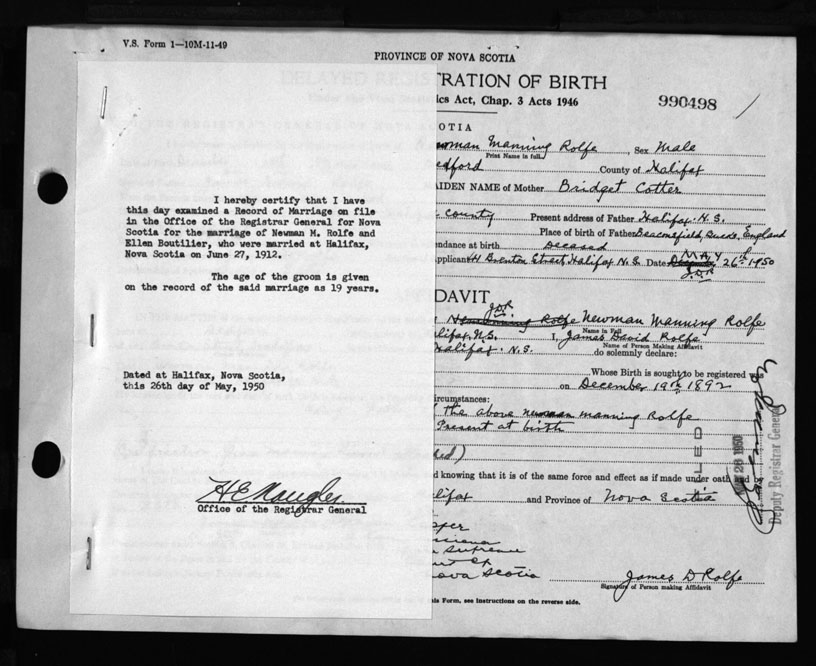 V.S. Form 1—10M-11-49
PROVINCE OF NOVA SCOTIA
DELAYED REGIS
TRATION OF BIRTH
ics Act, Chap. 3 Acts 1946
990498
I hereby certify that I have
this day examined a Record of Marriage on file
in the Office of the Registrar General for Nova
Scotia for the marriage of Newman M. Rolfe and
Ellen Boutilier, who were married at Halifax,
Nova Scotia on June 27, 1912.
The age of the groom is given
on the record of the said marriage as 19 years.
Dated at Halifax, Nova Scotia,
this 26th day of May, 1950
Office of the Registrar General
COTIA
wman Manning Rolfe, Sex Male
Print Name in full.
edford County of Halifax
AIDEN NAME of Mother Bridget Cotter
County Present address of Father Halifax. N.S.
Place of birth of Father Beaconsfield, Bucks, England
endance at birth Deceased
Applicant 44 Brenton Street, Halifax N.S. Date MAY 26th 1950
J.D.R
DAVIT
J.D.R.
Rolfe Newman Manning Rolfe
Name in Full
alifax, N.S. I, James David Rolfe
Name of Person Making Affidavit
Halifax. N.S. do solemnly declare:
Whose Birth is sought to be registered was
on December 19th 1892
circumstances:
f the above Newman Manning Rolfe
Present at birth
ed)
d knowing that it is of the same force and effect as if made under oath and
alifax and Province of Nova Scotia
Supreme
ova Scotia
James D Rolfe
Signature of Person making Affidavit
is Form, see instructions on the reverse side.
FILED
MAY 26 1950
Deputy Registrar General